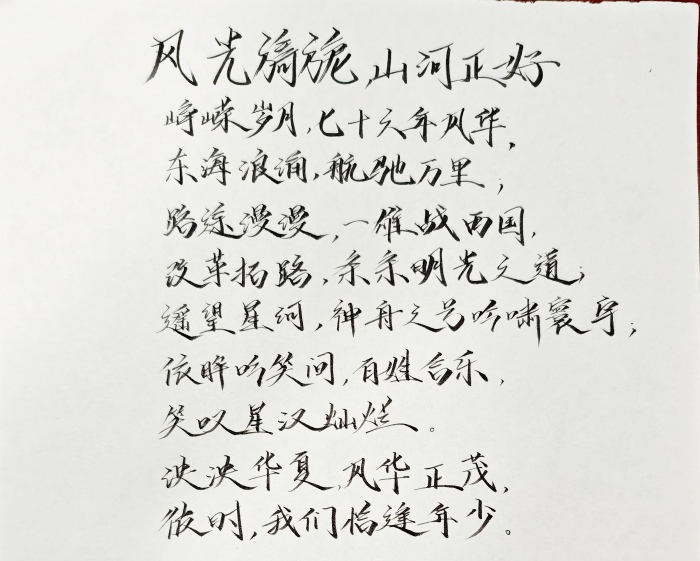 风光旖旎,山河正好
峥嵘岁月,七十六年风华,
东海浪涌,航驰万里;
路途漫漫,一雄战两国,
改革拓路,条条明光之道;
遥望星河,神舟之号吟啸寰宇;
依眸吟笑问,百姓合乐,
笑叹星汉灿烂。
泱泱华夏,风华正茂,
彼时,我们恰逢年少。